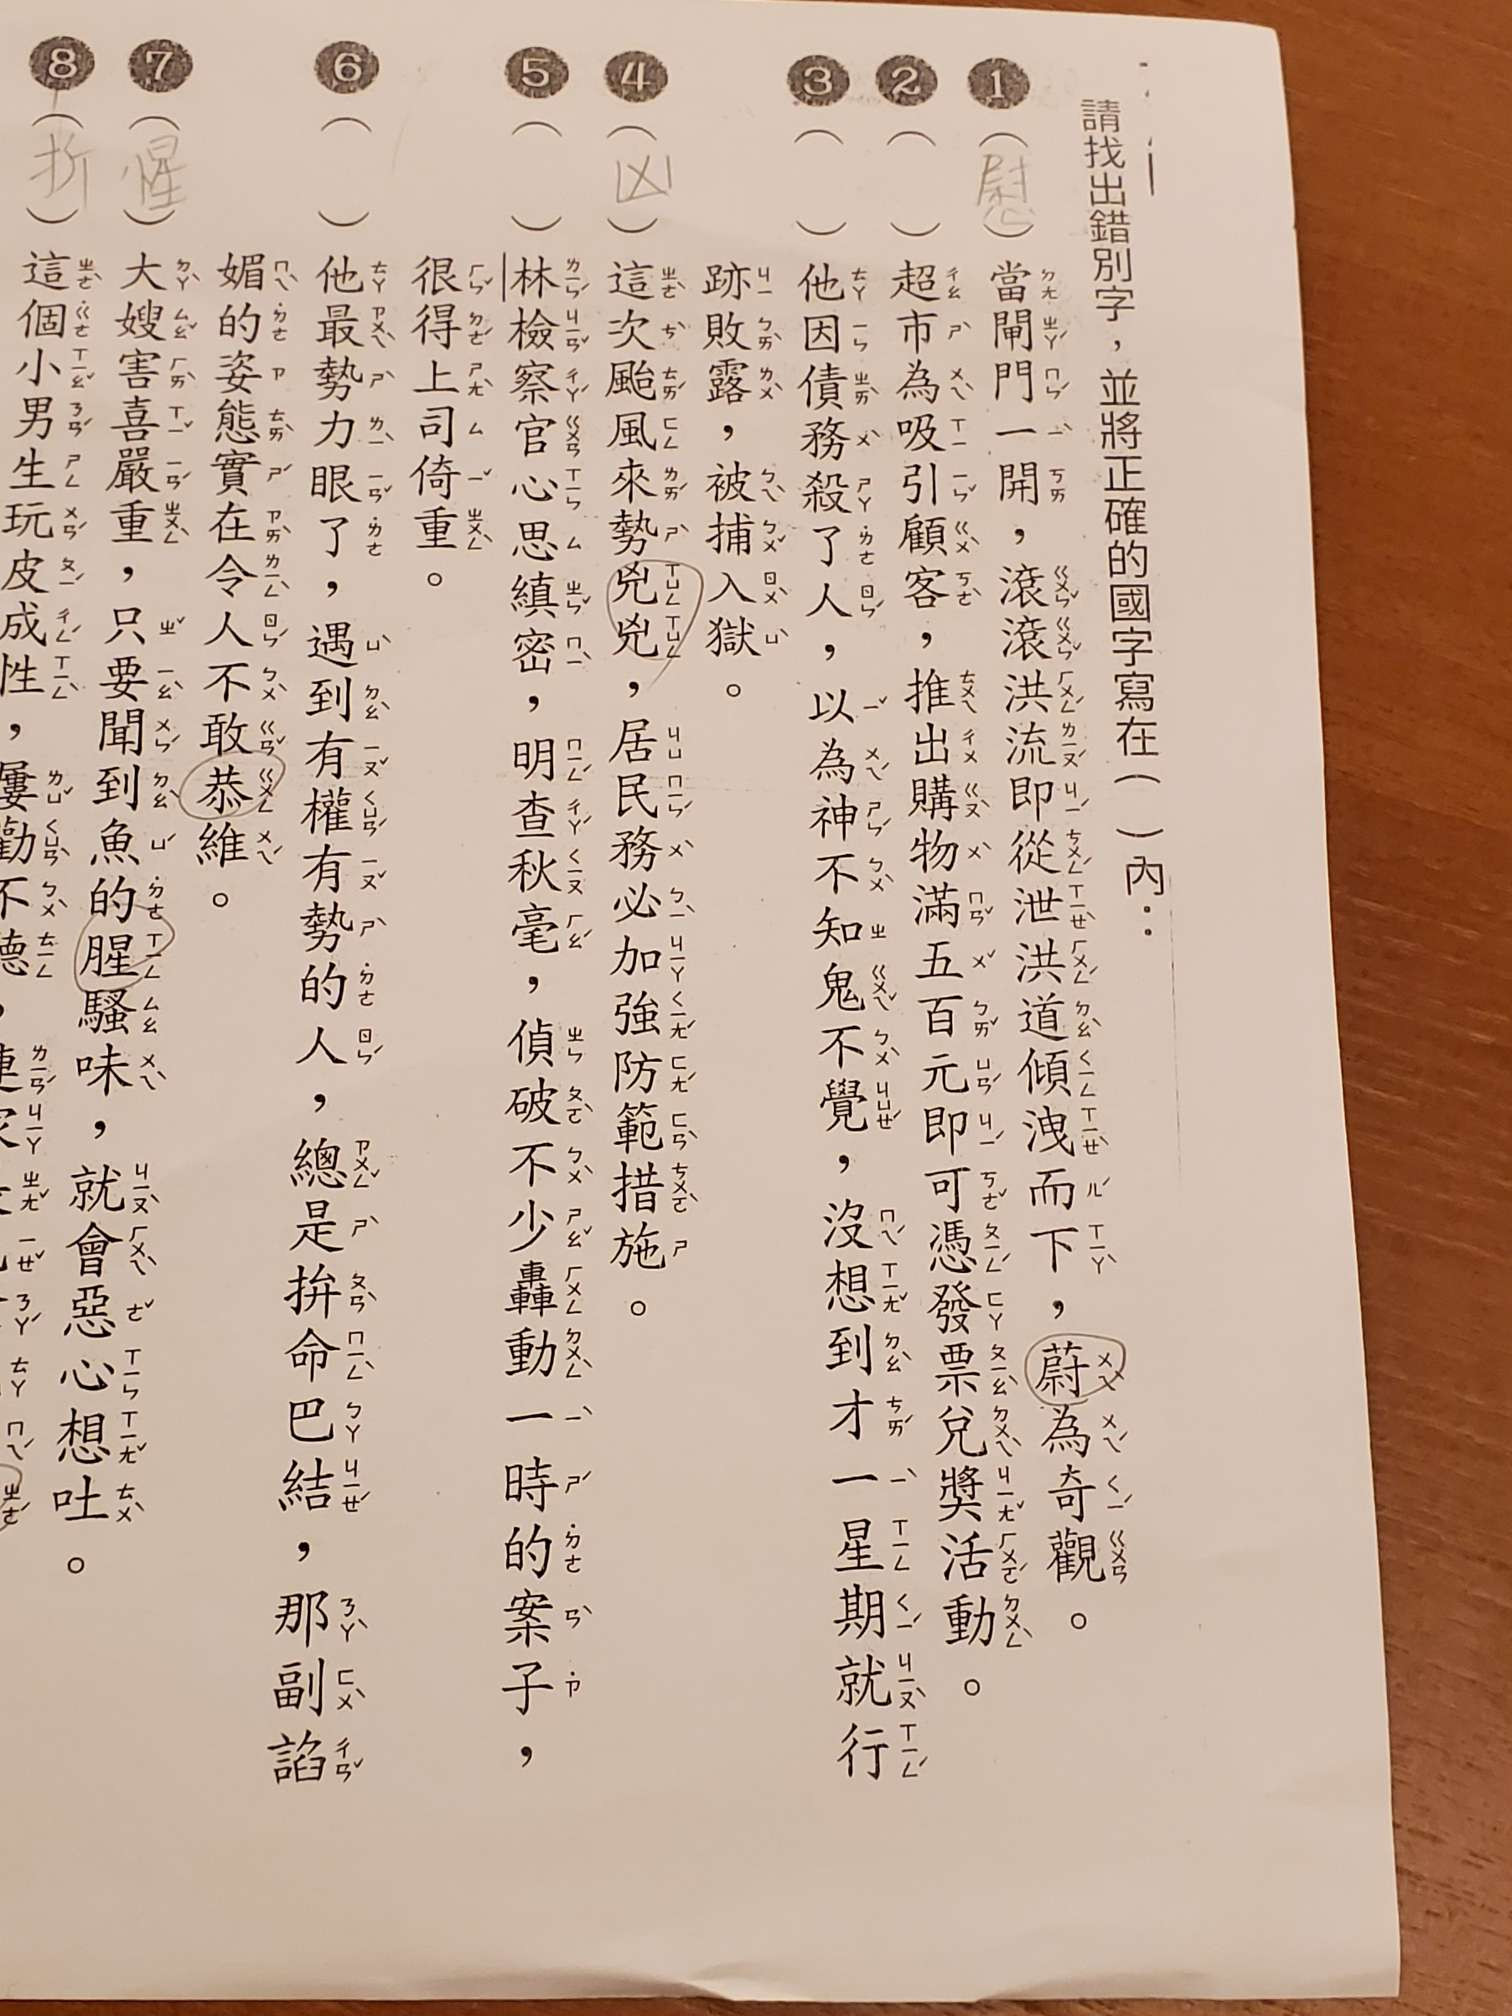 請找出錯別字，並將正確的國字寫在（ ）內：
❶（慰）當閘門一開，滾滾洪流即從泄洪道傾洩而下，蔚為奇觀。
❷（ ）超市為吸引顧客，推出購物滿五百元即可憑發票兌獎活動。
❸（ ）他因債務殺了人，以為神不知鬼不覺，沒想到才一星期就行
跡敗露，被捕入獄。
❹（凶）這次颱風來勢兇兇，居民務必加強防範措施。
❺（ ）林檢察官心思縝密，明查秋毫，偵破不少轟動一時的案子，
很得上司倚重。
❻（ ）他最勢力眼了，遇到有權有勢的人，總是拚命巴結，那副諂
媚的姿態實在令人不敢恭維。
❼（惺）大嫂害喜嚴重，只要聞到魚的腥騷味，就會惡心想吐。
❽（折）這個小男生玩皮成性，屢勸不聽，